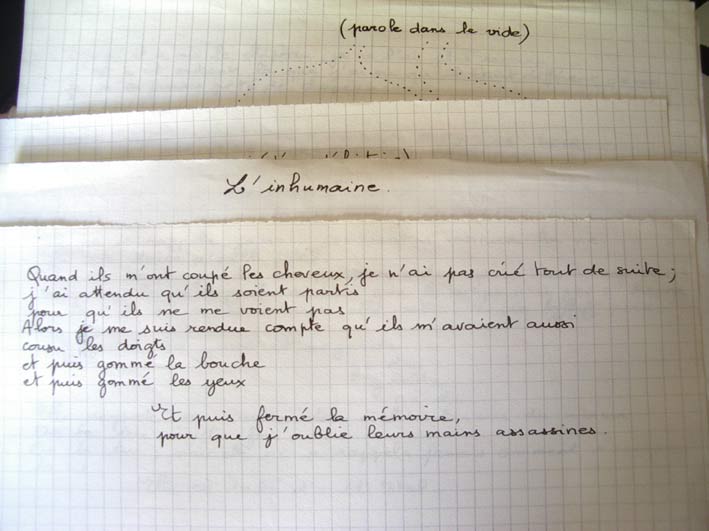 (parole dans le vide)
L'inhumaine.
Quand ils m'ont coupé les cheveux, je n'ai pas crié tout de suite;
j'ai attendu qu'ils soient partis
pour qu'ils ne me voient pas
Alors je me suis rendue compte qu'ils m'avaient aussi
cousu les doigts
et puis gommé la bouche
et puis gommé les yeux
Et puis fermé la mémoire,
pour que j'oublie leurs mains assassines.